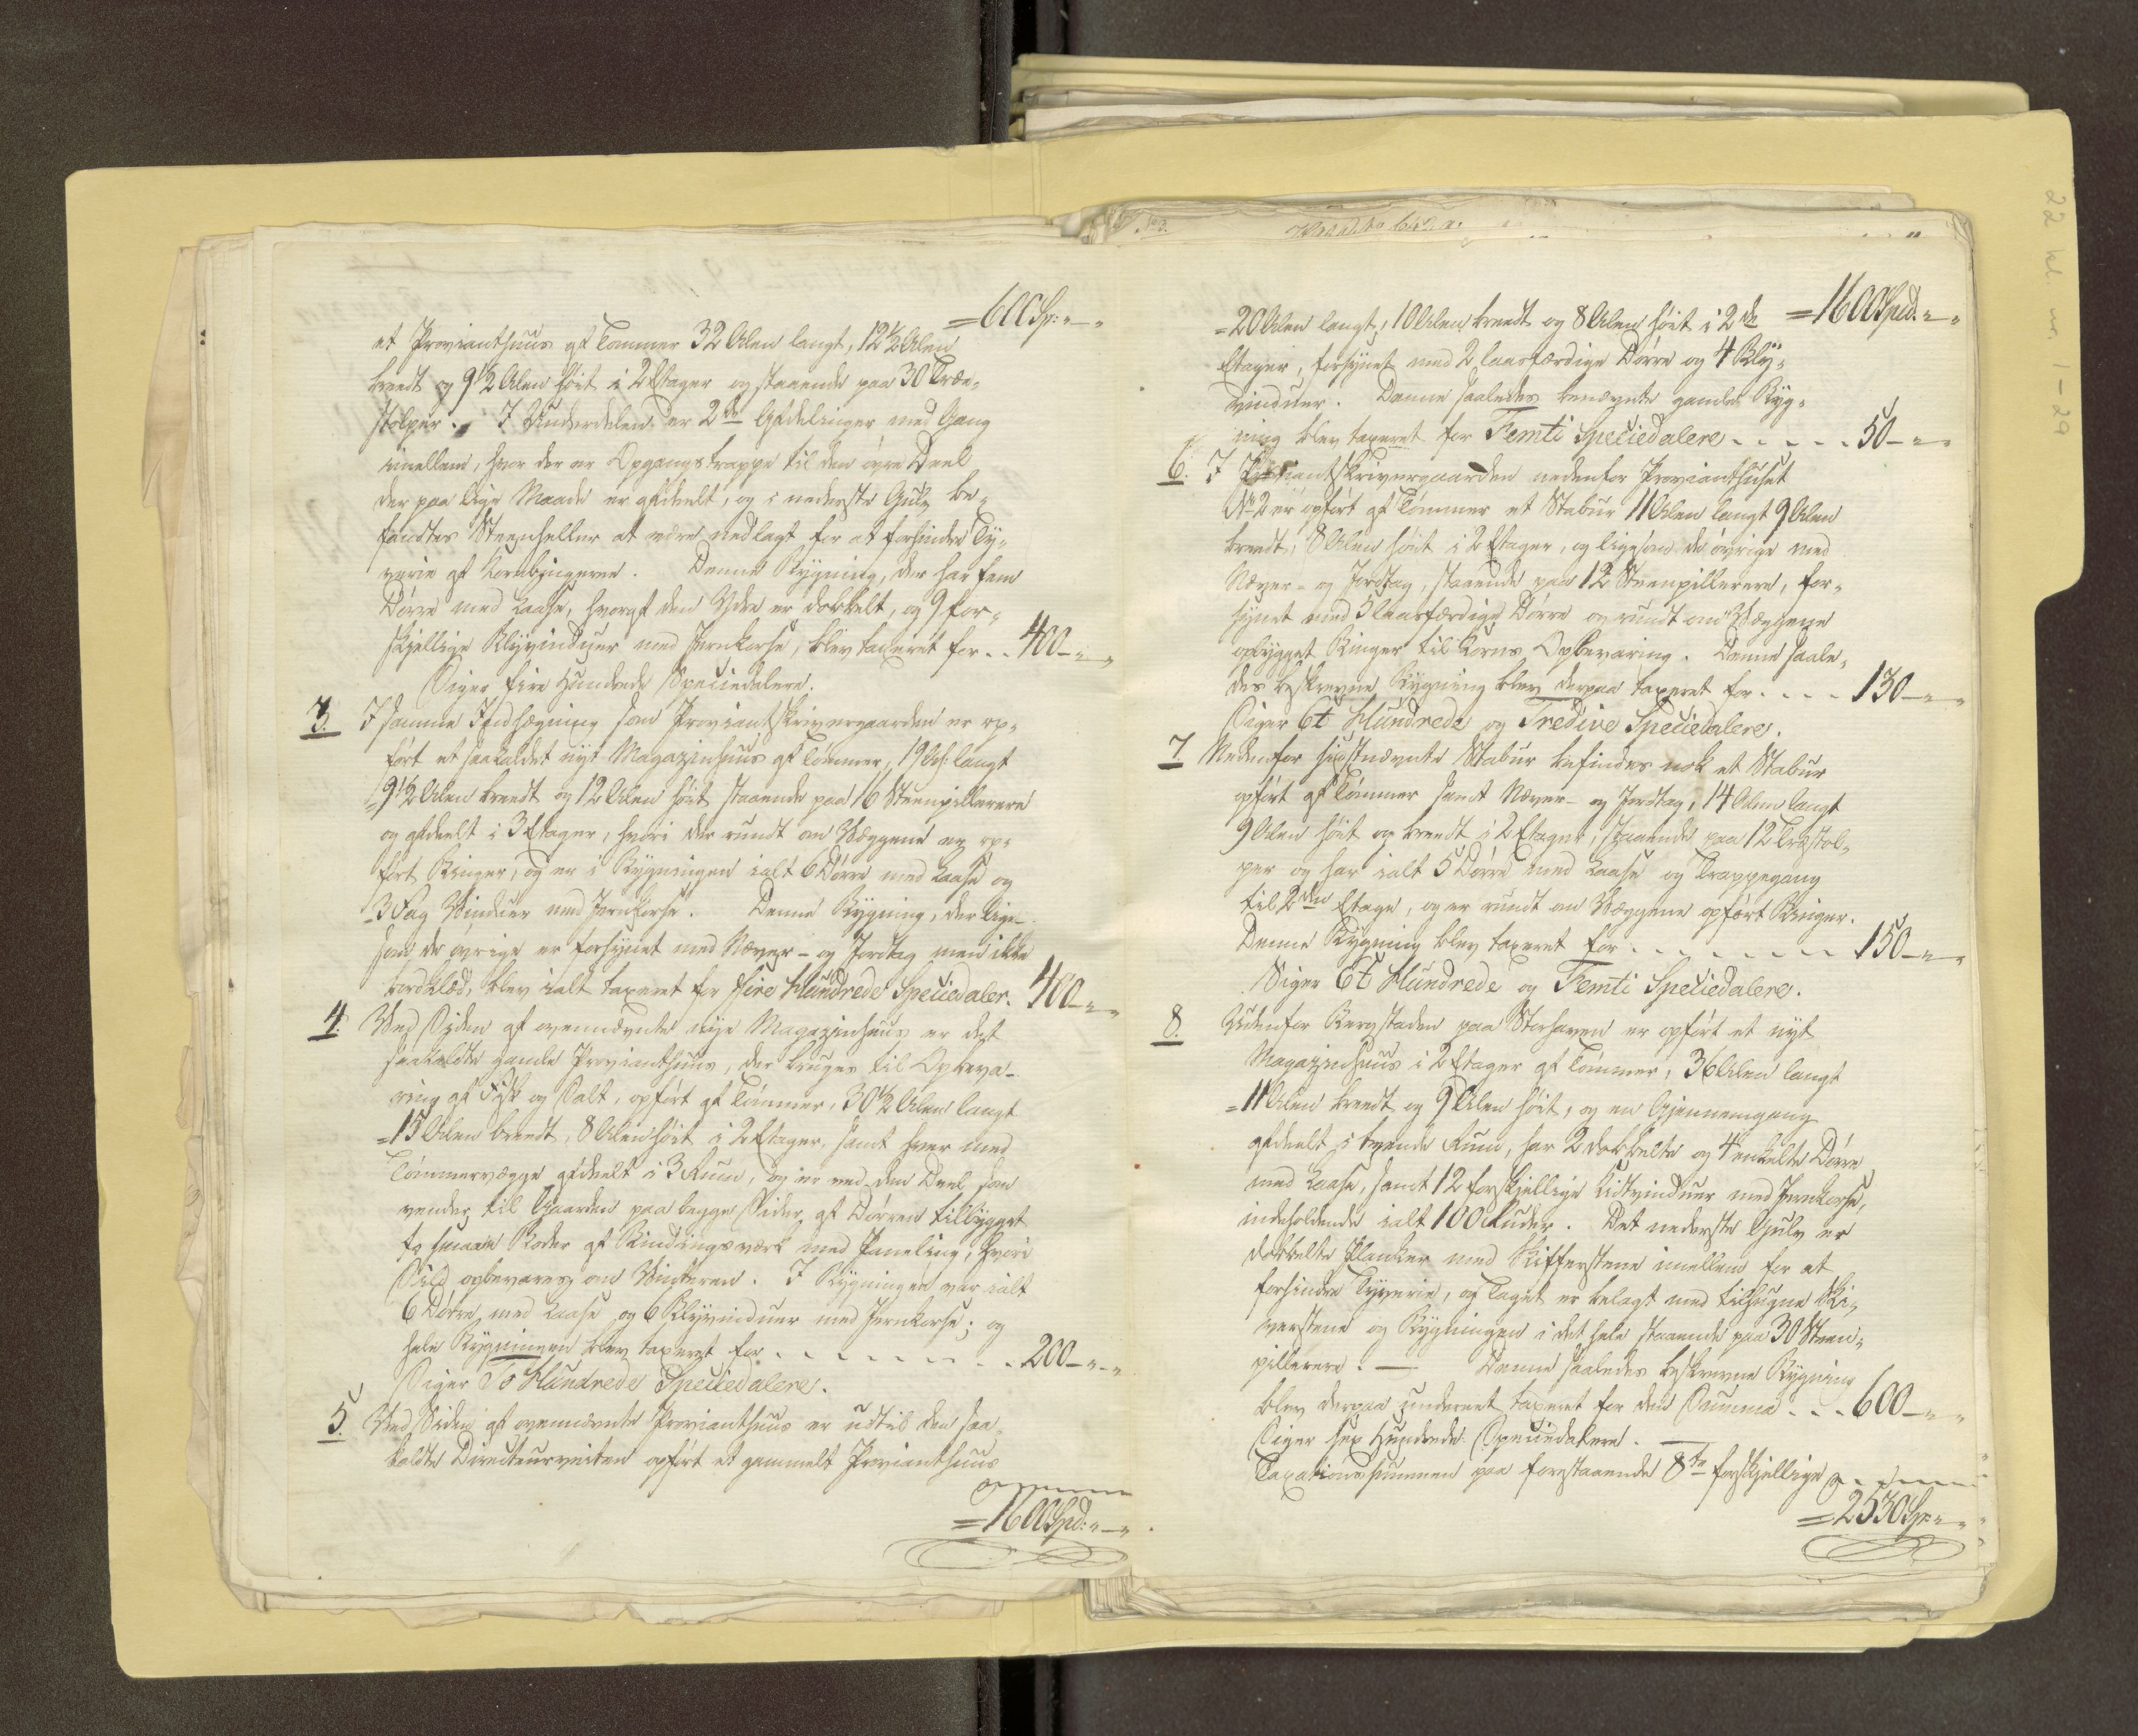 =600 Sp: „ — „
et Provianthuus af Tømmer 32 Alen langt, 12½ Alen
bredt og 9½ Alen høit i 2 Etager og staaende paa 30 Træe-
stolper. I Underdelen er 2de Afdelinger med Gang
imellem, hvor der er Opgangstrappe til den øvre Deel
der paa lige Maade er afdeelt, og i nederste Gulv be-
fandtes Steenheller at være nedlagt for at forhindre Ty-
verie af Kornbingerne. Denne Bygning, der har fem
Dørre med Laase, hvoraf den Ydre er dobbelt, og 9 for-
skjellige Blyvinduer med Jernkorse, blev taxeret for . . 400 – „ – „
Siger fire Hundrede Speciedalere.
3. I samme Indhægning som Proviantskrivergaarden er op-
ført et saakaldet nyt Magazinhuus af Tømmer, 19 Al: langt
9½ Alen bredt og 12 Alen høit staaende paa 16 Steenpillerere
og afdeelt i 3 Etager, hvori der rundt om Væggene er op-
ført Binger, og er i Bygningen ialt 6 Dørre med Laase og
3 Fag Vinduer med Jernkorse. Denne Bygning, der lige-
som de øvrige er forsynet med Næver- og Jordtag men ikke
bordklæd, blev ialt taxeret for Fire Hundrede Speciedaler. 400 – „ – „
4. Ved Siden af ovennævnte nye Magazinhuus er det
saakaldte gamle Provianthuus, der bruges til Opbeva-
ring af Fisk og Salt, opført af Tømmer, 30½ Alen langt
15 Alen bredt, 8 Alen høit i 2 Etager, samt hver med
Tømmervægge afdeelt i 3 Rum, og er ved den Deel som
vender til Gaarden paa begge Sider af Dørren tilbygget
to smaae Boder af Bindingsværk med Paneling, hvori
Sild opbevares om Vinteren. I Bygningen var ialt
6 Dørre med Laase og 6 Blyvinduer med Jernkorse; og
hele Bygningen blev taxeret for . . . . . . . . . 200 – „ – „
Siger To Hundrede Speciedalere.
5. Ved Siden af ovennævnte Provianthuus er udtil den saa-
kaldte Directeurveiten opført et gammelt Provianthuus
=1600 Spd: „ — „
=1600 Spd. „ – „
20 Alen langt, 10 Alen bredt og 8 Alen høit i 2de
Etager, forsynet med 2 laasfærdige Dørre og 4 Bly-
vinduer. Denne saaledes benævnte gamle Byg-
ning blev taxeret for Femti Speciedalere . . . . . 50 – „ – „
6. I Proviantskrivergaarden nedenfor Provianthuset
No 2 er opført af Tømmer et Stabur 11 Alen langt 9 Alen
bredt, 8 Alen høit i 2 Etager, og ligesom de øvrige med
Næver- og Jordtag, staaende paa 12 Steenpillerere, for-
synet med 3 laasfærdige Dørre og rundt om Væggene
opbygget Binger til Korns Opbevaring. Denne saale-
des beskrevne Bygning blev derpaa taxeret for . . . . 130 – „ – „
Siger Et Hundrede og Tredive Speciedalere.
7. Nedenfor sidstnævnte Stabur befindes nok et Stabur
opført af Tømmer samt Næver- og Jordtag, 14 Alen langt
9 Alen høit og bredt i 2 Etager, staaende paa 12 Træstol-
per og har ialt 5 Dørre med Laase og Trappegang
til 2den Etage, og er rundt om Væggene opført Binger.
Denne Bygning blev taxeret for . . . . . . . . 150 – „ – „
Siger Et Hundrede og Femti Speciedalere.
8. Udenfor Bergstaden paa Storhaven er opført et nyt
Magazinhuus i 2 Etager af Tømmer, 36 Alen langt
11 Alen bredt og 9 Alen høit, og en Gjennemgang
afdeelt i tvende Rum, har 2 dobbelte og 4 enkelte Dørre
med Laase, samt 12 forskjellige Kidtvinduer med Jernkorse,
indeholdende ialt 100 Ruder. Det nederste Gulv er
dobbelte Planker med Skifferstene imellem for at
forhindre Tyverie, og Taget er belagt med tilhugne Ski-
verstene og Bygningen i det hele staaende paa 30 Steen-
pillerere. — Denne saaledes beskrevne Bygning
blev derpaa undereet taxeret for den Summa . . . 600 – „ – „
Siger sex Hundrede Speciedalere.
Taxationssummen paa forestaaende 8te forskjellige
=2530 Sp: „ – „
22 kl. nr. 1–29